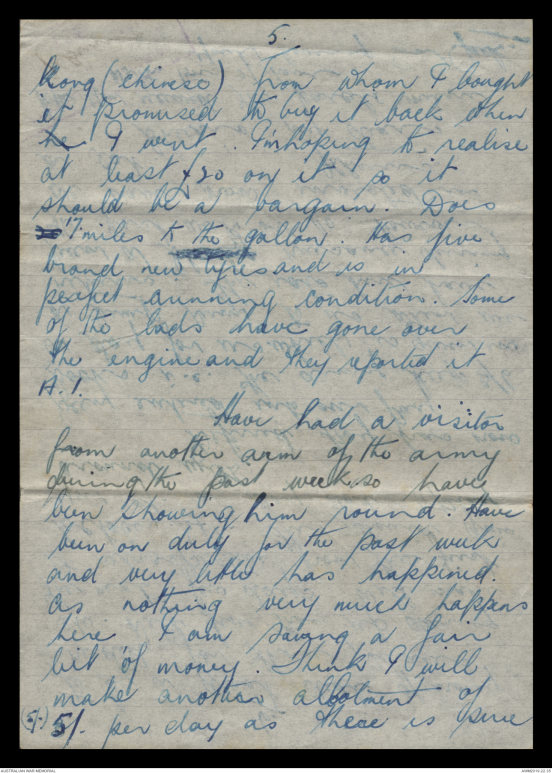 5.
Kong (Chinese) from whom I bought
it promised to buy it back when
he I went. I'm hoping to realise
at least £20 on it so it
should be a bargain. Does
17 miles to the gallon. Has five
brand new tyres and is in
perfect running condition. Some
of the lads have gone over
the engine and they reported it
A.1.
Have had a visitor
from another arm of the army
during the past week so have
been showing him round. Have
been on duty for the past week
and very little has happened.
As nothing very much happens
here I am saving a fair
bit of money. Think I will
make another allotment of
(5/-) 5/- per day as there is pure
AUSTRALIAN WAR MEMORIAL